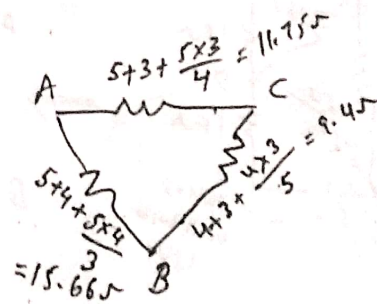 5+3+ 5×3/4 = 11.75Ω
A
C
5+4+ 5×4/3
=15.66Ω
4+3+ 4×3/5 = 9.4Ω
B